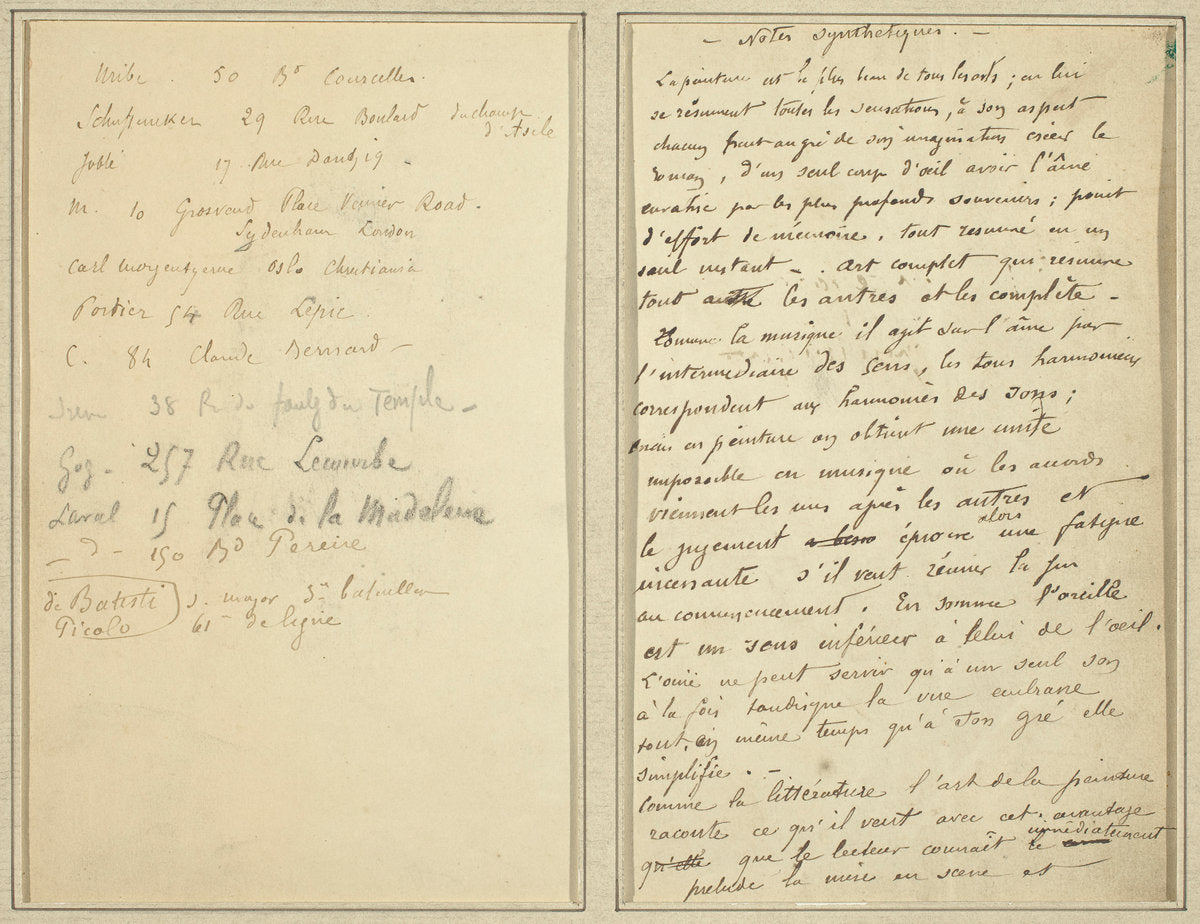 Uribe . 50 Bd Courcelles.
Schuffenecker 29 Rue Boulard du champ
d'Asile
Jobbé 17 Rue Dantzig -
M. 10 Place Road.
Sydenham London
Carl Oslo Christiania
Portier 54 Rue Lepic.
C. 84 Claude Bernard -
38 R. du faubg du Temple -
Gog - 257 Rue Lecourbe
Laval 15 Place de la Madeleine
- d - 150 Bd Pereire
de Batisti s. major 3m bataillon
Picolo 61m de ligne
- Notes synthetiques. -
La peinture est le plus beau de tous les arts ; en lui
se résument toutes les sensations, à son aspect
chacun peut au gré de son imagination créer le
roman, d'un seul coup d'œil avoir l'âme
envahie par les plus profonds souvenirs ; point
d'effort de mémoire, tout résumé en un
seul instant -. Art complet qui résume
tout les autres et les complète -
Comme la musique il agit sur l'âme par
l'intermediaire des sens, les tons harmonieux
correspondent aux harmonies des sons ;
mais en peinture on obtient une unité
impossible en musique où les accords
viennent les uns après les autres et
le jugement éprouve alors une fatigue
incessante s'il veut réunir la fin
au commencement. En somme l'oreille
est un sens inférieur à celui de l'œil.
L'ouie ne peut servir qu'à un seul son
à la fois tandisque la vue embrasse
tout, en même temps qu'à son gré elle
simplifie. -
Comme la littérature l'art de la peinture
raconte ce qu'il veut avec cet avantage
qu'elle que le lecteur connaît immédiatement le
prelude la mise en scene et